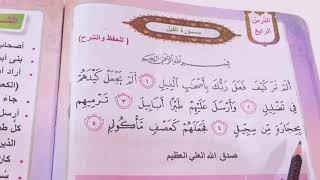 الدرس الرابع
سورة الفيل
(للحفظ والشرح)
بِسْمِ اللَّهِ الرَّحْمَنِ الرَّحِيمِ
أَلَمْ تَرَ كَيْفَ فَعَلَ رَبُّكَ بِأَصْحَابِ الْفِيلِ ١ أَلَمْ يَجْعَلْ كَيْدَهُمْ
فِي تَضْلِيلٍ ٢ وَأَرْسَلَ عَلَيْهِمْ طَيْرًا أَبَابِيلَ ٣ تَرْمِيهِم
بِحِجَارَةٍ مِّن سِجِّيلٍ ٤ فَجَعَلَهُمْ كَعَصْفٍ مَّأْكُولٍ ٥
صدق الله العلي العظيم
أصحاب
أراد أ
جاء
أرسل
كل ط
الذين
كان